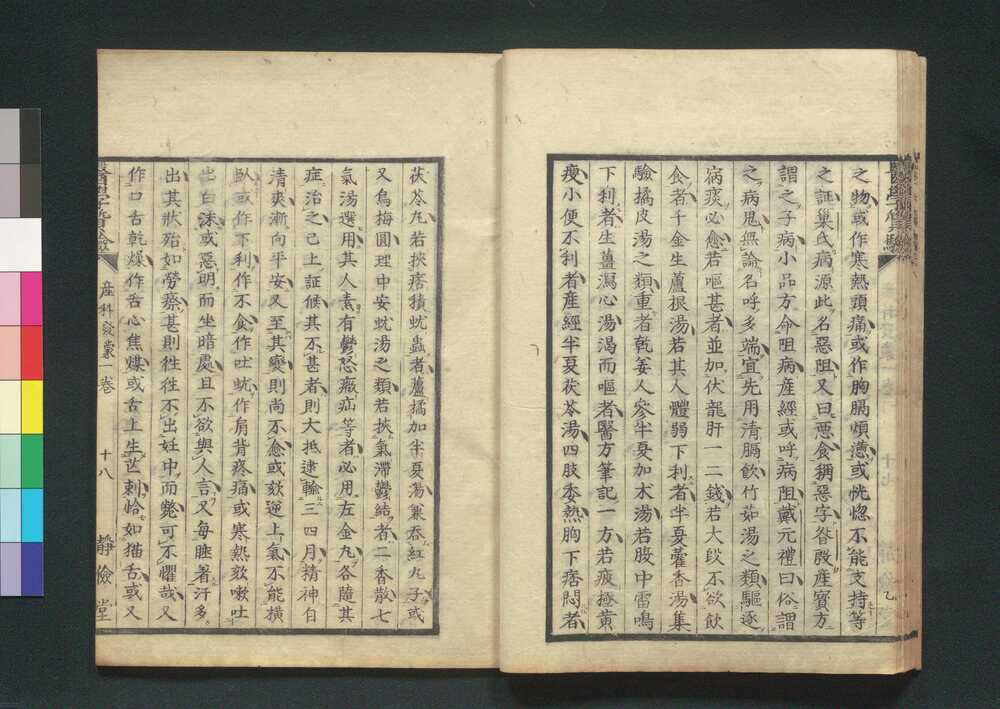 之物或作寒熱頭痛或作胸膈煩懣或恍惚不能支持等
之証巢氏病源此名惡阻又曰惡食稱惡字昝殷產寳方
謂之子病小品方命阻病產經或呼病阻戴元禮曰俗謂
之病兒無論名呼多端宜先用清膈飲竹茹湯之類驅逐
痰必愈若嘔甚者並加伏龍肝一二錢若大段不欲飲
食者千金生蘆根湯若其人體弱下利者半夏藿香湯集
驗橘皮湯之類重者乾姜人參半夏加朮湯若腹中雷鳴
下利者生薑瀉心湯渴而嘔者醫方筆記一方若疲極黄
瘦小便不利者產經半夏茯苓湯四肢委熱胸下痞悶者
茯苓丸若挾痞積蚘蟲者蘆橘加半夏湯兼吞紅丸子或
又烏梅圓理中安蚘湯之類若挾氣滯鬱結者二香散七
氣湯選用其人素有鬱怒癥疝等者必用左金丸各隨其
症治之已上証候其不甚者則大抵逮輸三四月精神自
清爽漸向平安又至其變則尚不愈或欬逆上氣不能橫
臥或作下利作不食作吐蚘作肩背疼痛或寒熱欬嗽吐
出白沫或惡明而坐暗處且不欲與人言又每睡著汗多
出其狀殆如勞瘵甚則徃徃不出妊中而斃可不懼哉又
作口舌乾燥作舌心焦爛或舌上生芒刺恰如猫舌或又
產科發蒙一卷 十八 靜儉堂